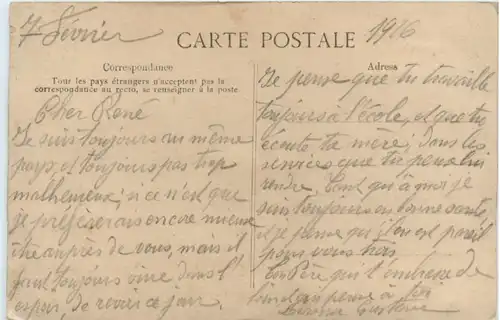 7 Février 1916
CARTE POSTALE
Correspondance
Tous les pays étrangers n'acceptent pas la
correspondance au recto, se renseigner à la poste
Cher René
Je suis toujours au même
pays, et toujours pas trop
malheureux; si ce n'est que
je préfèrerais encore mieux
être auprès de vous, mais il
faut toujours vivre dans l'
espoir, de revoir ce jour.
Adresse
Je pense que tu travaille
toujours à l'école, et que tu
écoute ta mère; dans les
services que tu peux lui
rendre. Tant qu'à moi je
suis toujours en bonne santé,
et je pense qu'il en est pareil
pour vous trois
Ton Père qui t'embrasse de
loin qui pense à toi
Gustave